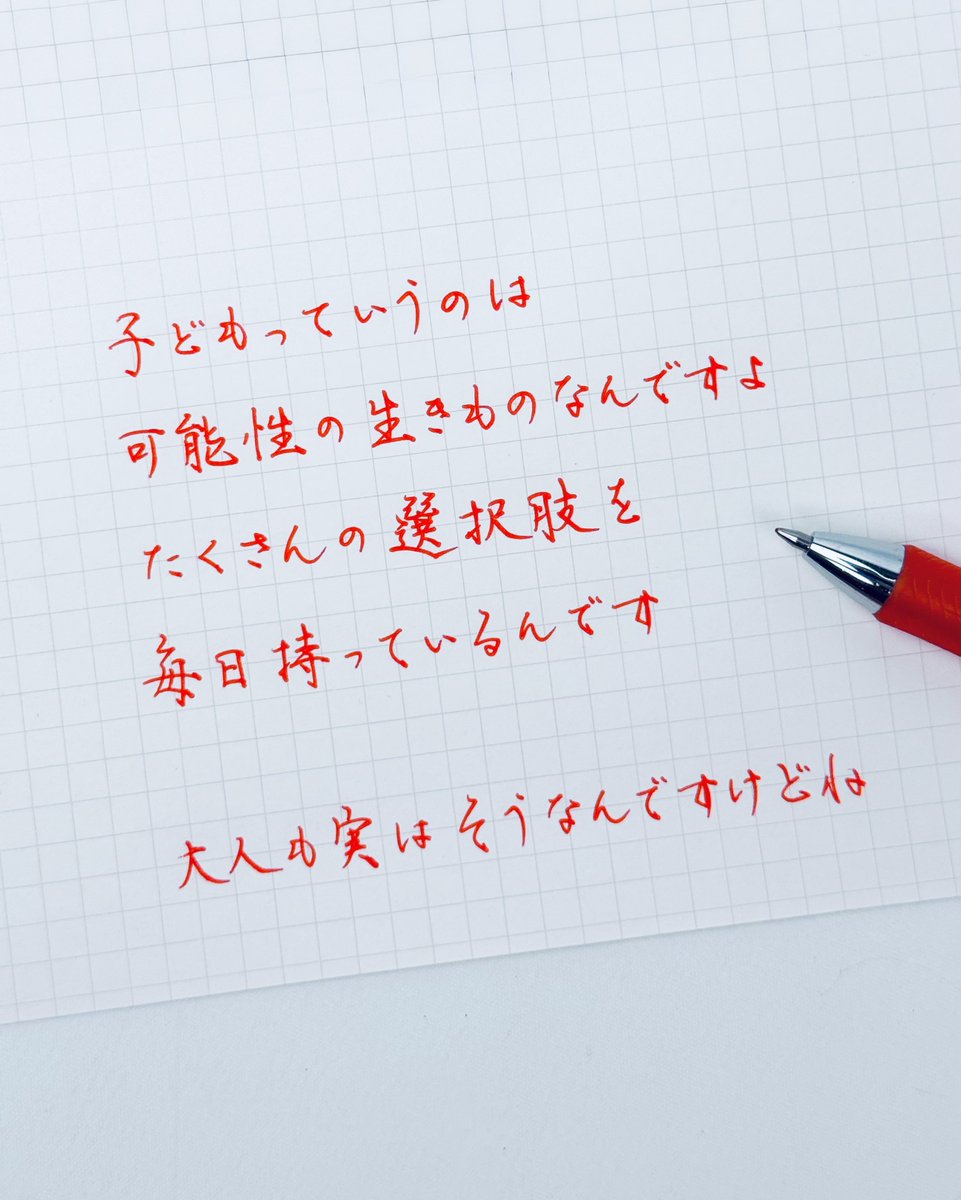 子どもっていうのは
可能性の生きものなんですよ
たくさんの選択肢を
毎日持っているんです
大人も実はそうなんですけどね